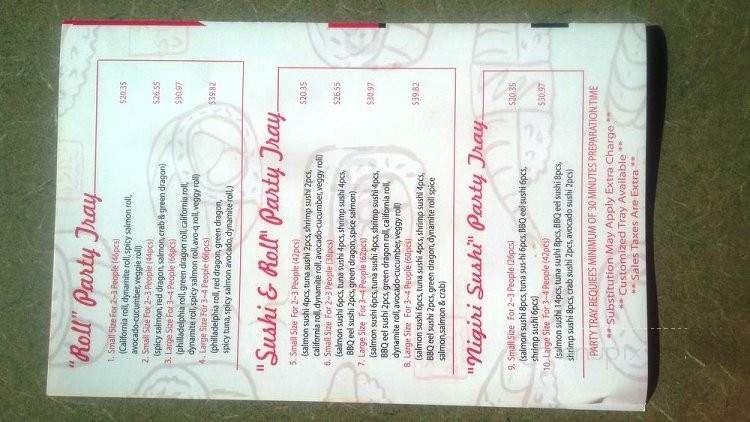 "Roll" Party Tray
1. Small Size For 2~3 People (46pcs) $20.35
(California roll, dynamite roll, spicy salmon roll,
avocado-cucumber, veggie roll)
2. Small Size For 2~3 People (44pcs) $26.55
(spicy salmon, red dragon, salmon, crab & green dragon)
3. Large Size For 3~4 People (68pcs) $30.97
(philladelphia roll, green dragon roll, california roll,
dynamite roll, spicy salmon roll, avo-q roll, veggy roll)
4. Large Size For 3~4 People (66pcs) $39.82
(philladelphia roll, red dragon, green dragon,
spicy tuna, spicy salmon avocado, dynamite roll.)
"Sushi & Roll" Party Tray
5. Small Size For 2~3 People (42pcs) $20.35
(salmon sushi 4pcs, tuna sushi 2pcs, shrimp sushi 2pcs,
california roll, dynamite roll, avocado-cucumber, veggy roll)
6. Small Size For 2~3 People (38pcs) $26.55
(salmon sushi 6pcs, tuna sushi 4pcs, shrimp sushi 4pcs,
BBQ eel sushi 2pcs, green dragon, spice salmon)
7. Large Size For 3~4 People (62pcs) $30.97
(salmon sushi 6pcs, tuna sushi 4pcs, shrimp sushi 4pcs,
BBQ eel sushi 2pcs, green dragon roll, california roll,
dynamite roll, avocado-cucumber, veggy roll)
8. Large Size For 3~4 People (60pcs) $39.82
(salmon sushi 6pcs, tuna sushi 4pcs, shrimp sushi 4pcs,
BBQ eel sushi 2pcs, green dragon, dynamite roll spice
salmon, salmon & crab)
"Nigiri Sushi" Party Tray
9. Small Size For 2~3 People (26pcs) $20.35
(salmon sushi 8pcs, tuna sushi 6pcs, BBQ eel sushi 6pcs,
shrimp sushi 6pcs)
10. Large Size For 3~4 People (42pcs) $30.97
(salmon sushi 14pcs, tuna sushi 8pcs, BBQ eel sushi 8pcs,
shrimp sushi 8pcs, crab sushi 2pcs, avocado sushi 2pcs)
PARTY TRAY REQUIEES MINIMUM OF 30 MINUTES PREPARATION TIME
** Substitution May Apply Extra Charge **
** Customized Tray Available **
** Sales Taxes Are Extra **